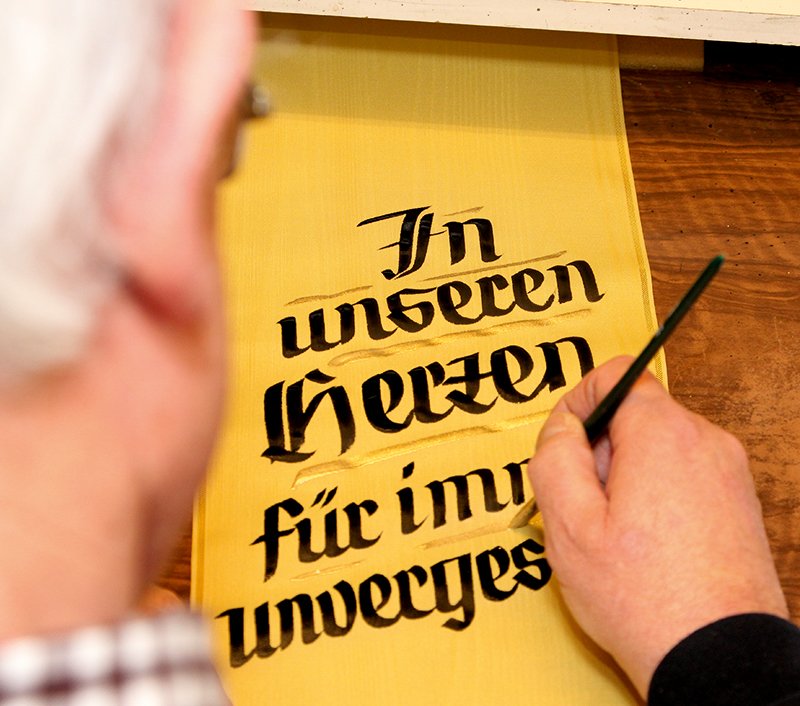 In
unseren
Herzen
für imm
unverges